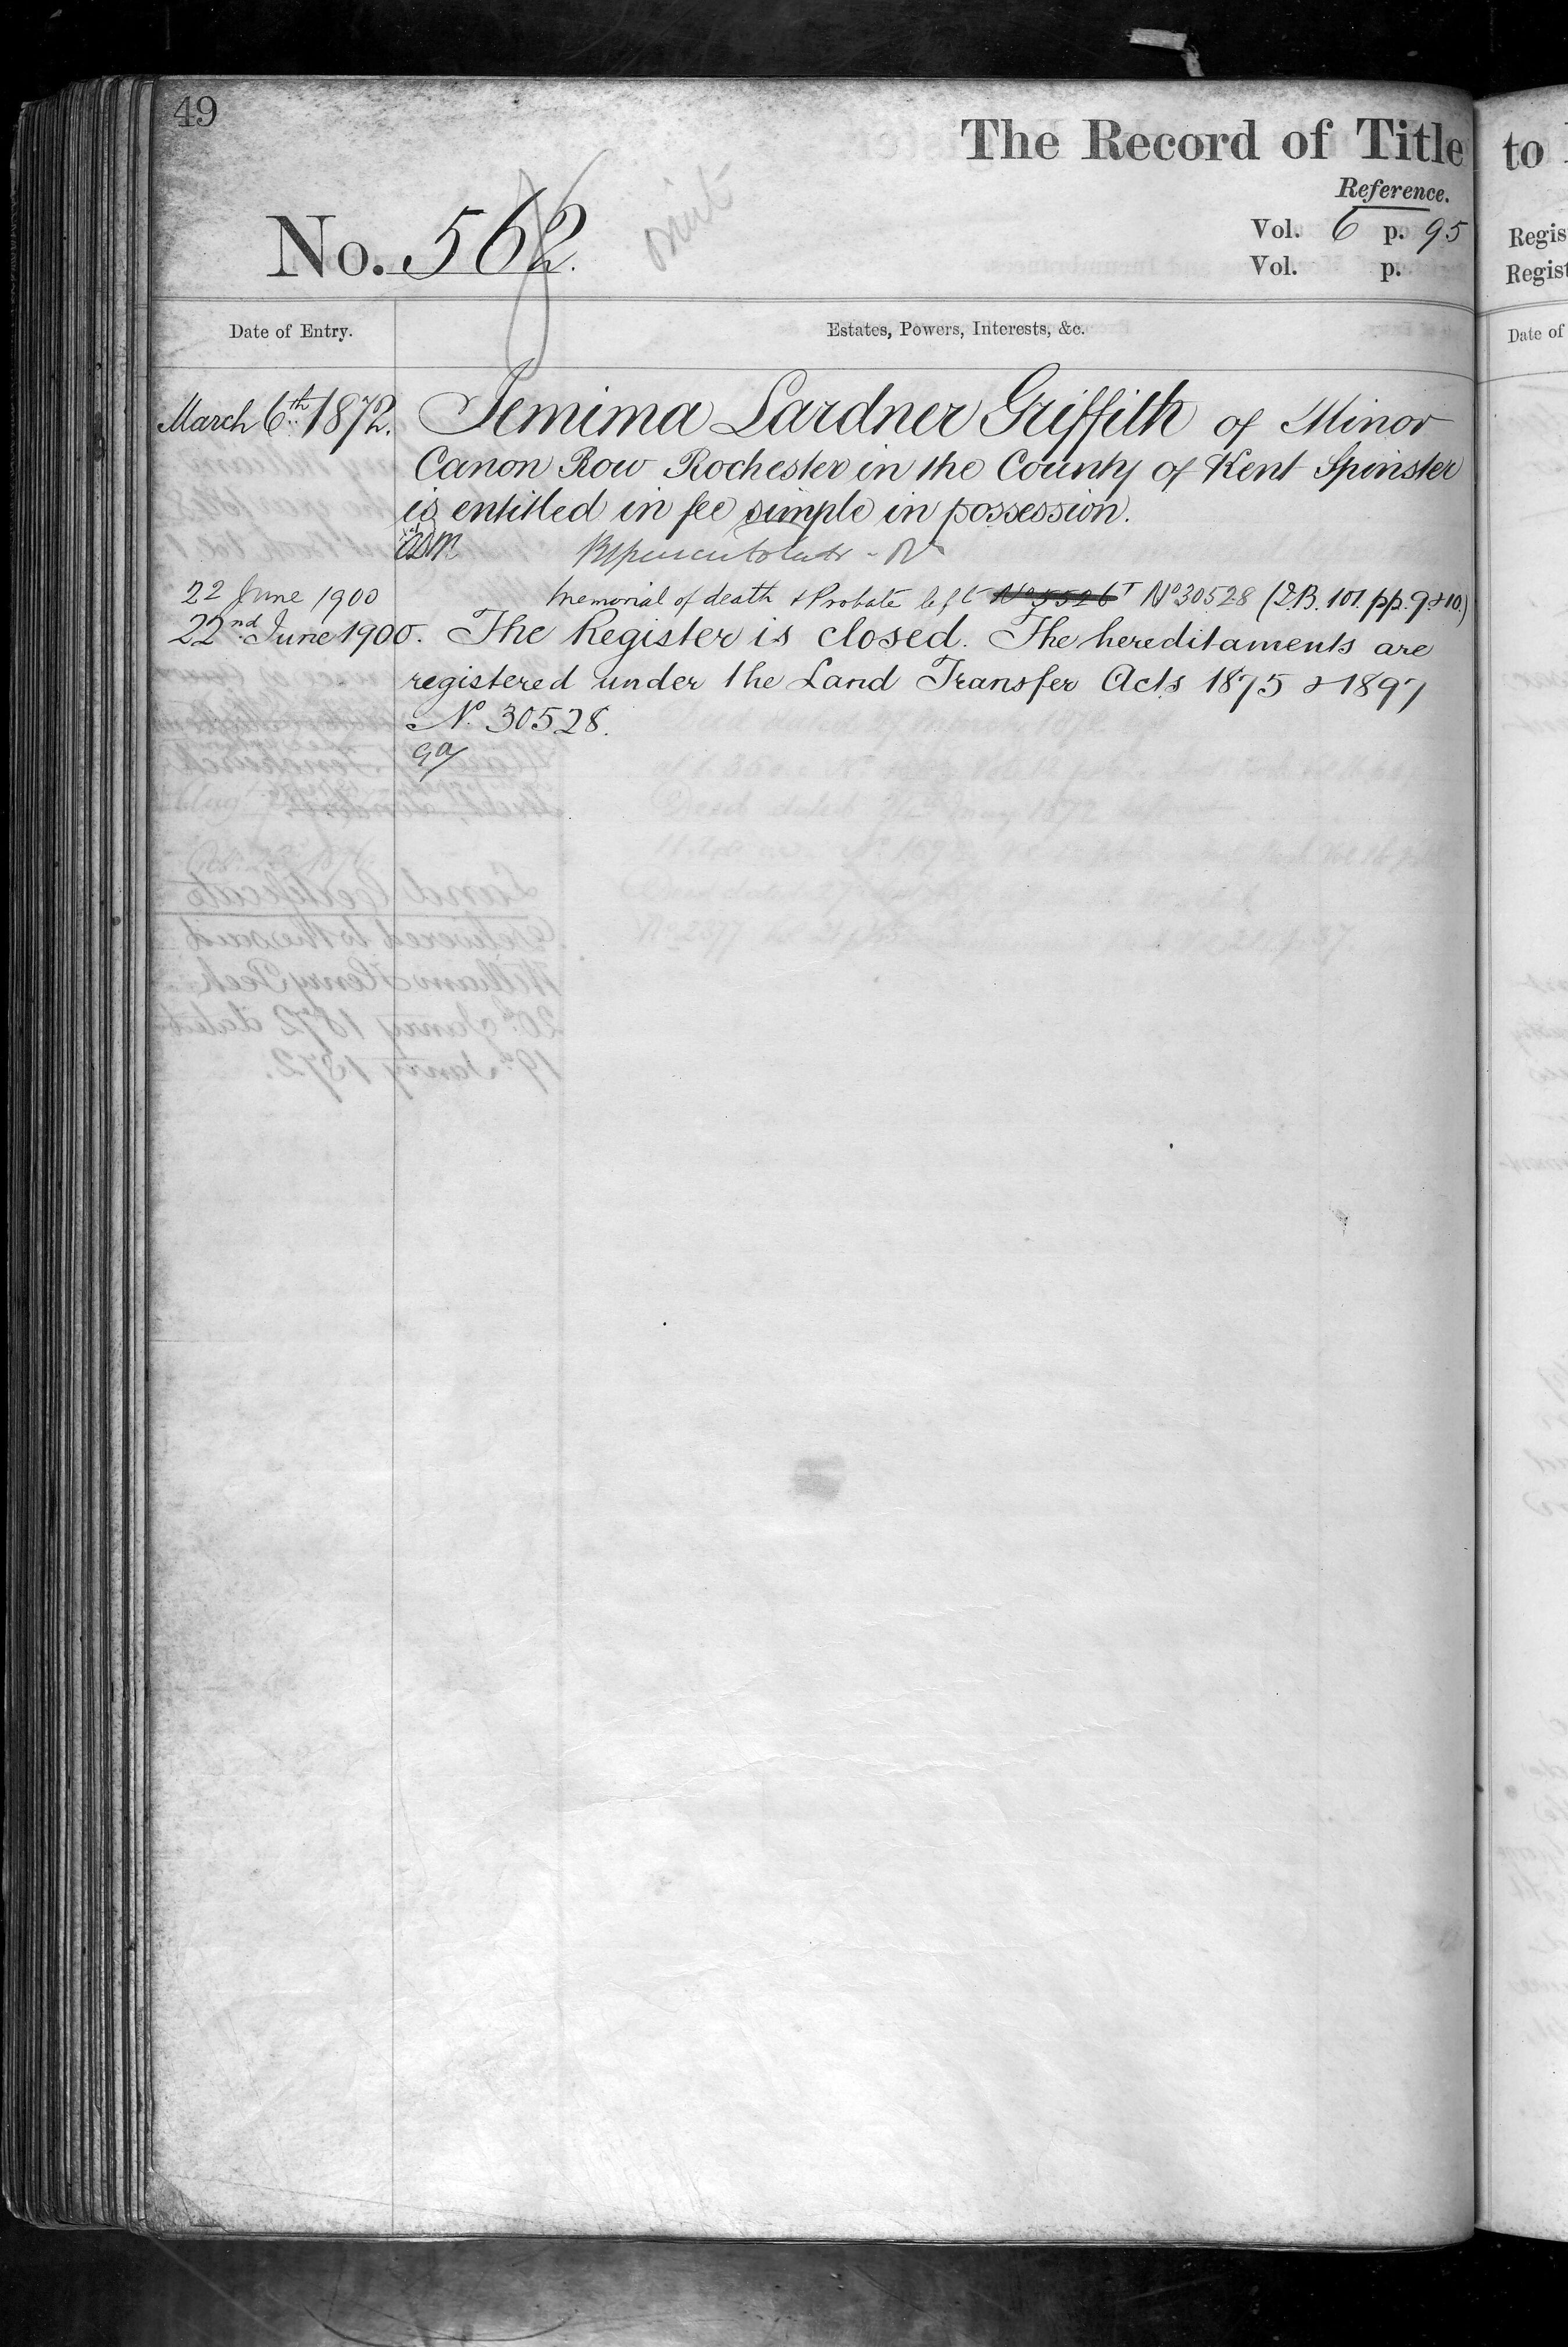 49
The Record of Title
to
Reference.
Vol. 6 p. 95
Vol. p.
No. 562.
omit
Regis
Regist
Date of Entry.
Estates, Powers, Interests, &c.
Date of
March 6th 1872.
Jemima Lardner Griffith of Minor
Canon Row Rochester in the County of Kent Spinster
is entitled in fee simple in possession.
22 June 1900
Memorial of death & Probate left No 30528 (I.B. 101. pp. 9 & 10.)
22nd June 1900. The Register is closed. The hereditaments are
registered under the Land Transfer Acts 1875 & 1897
No. 30528.